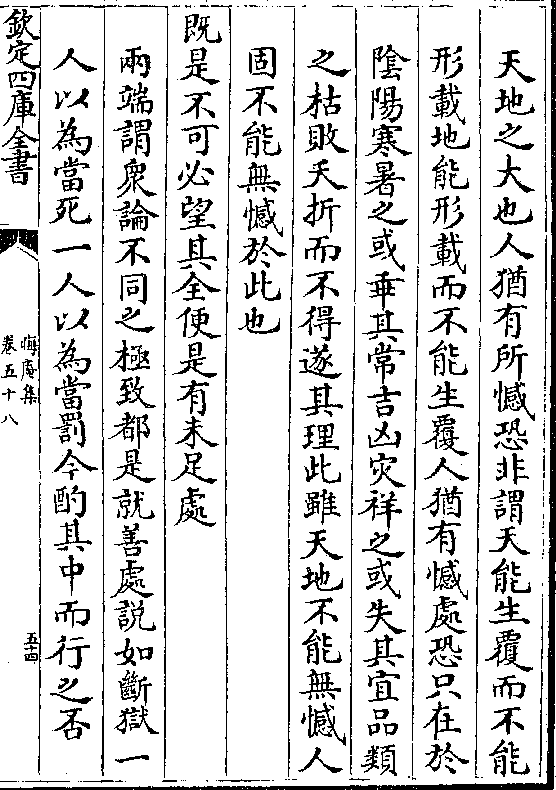 天地之大也人猶有所憾恐非謂天能生覆而不能
形載地能形載而不能生覆人猶有憾處恐只在於
陰陽寒暑之或乖其常吉凶灾祥之或失其宜品類
之枯敗夭折而不得遂其理此雖天地不能無憾人
固不能無憾於此也
既是不可必望其全便是有未足處
兩端謂衆論不同之極致都是就善處説如斷獄一
人以為當死一人以為當罰今酌其中而行之否
欽定四庫全書
晦庵集
卷五十八
五十四